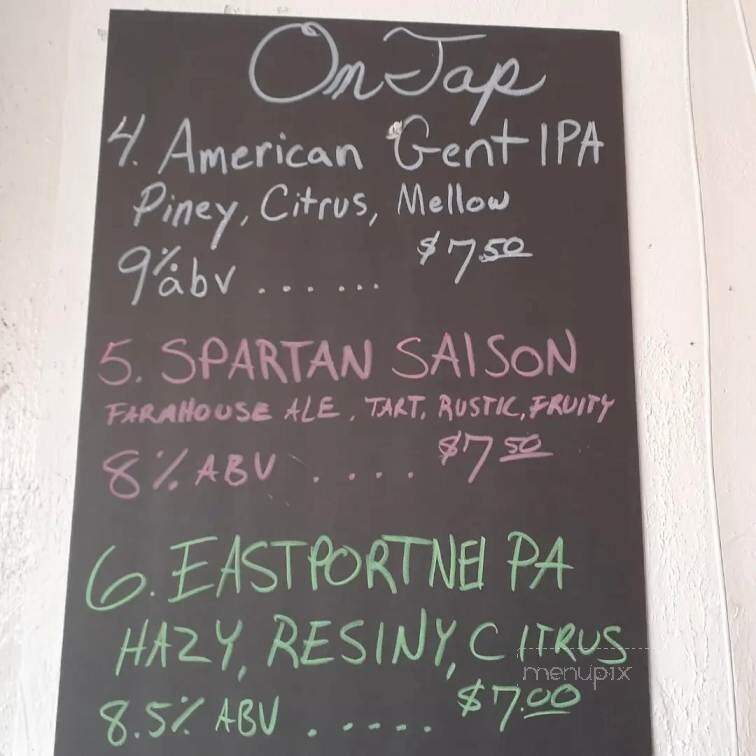 On Tap
4. American Gent IPA
Piney, Citrus, Mellow
9% abv ....... $7.50
5. SPARTAN SAISON
FARMHOUSE ALE, TART, RUSTIC, FRUITY
8% ABV ..... $7.50
6. EASTPORT NEIPA
HAZY, RESINY, CITRUS
8.5% ABV ...... $7.00
menupix